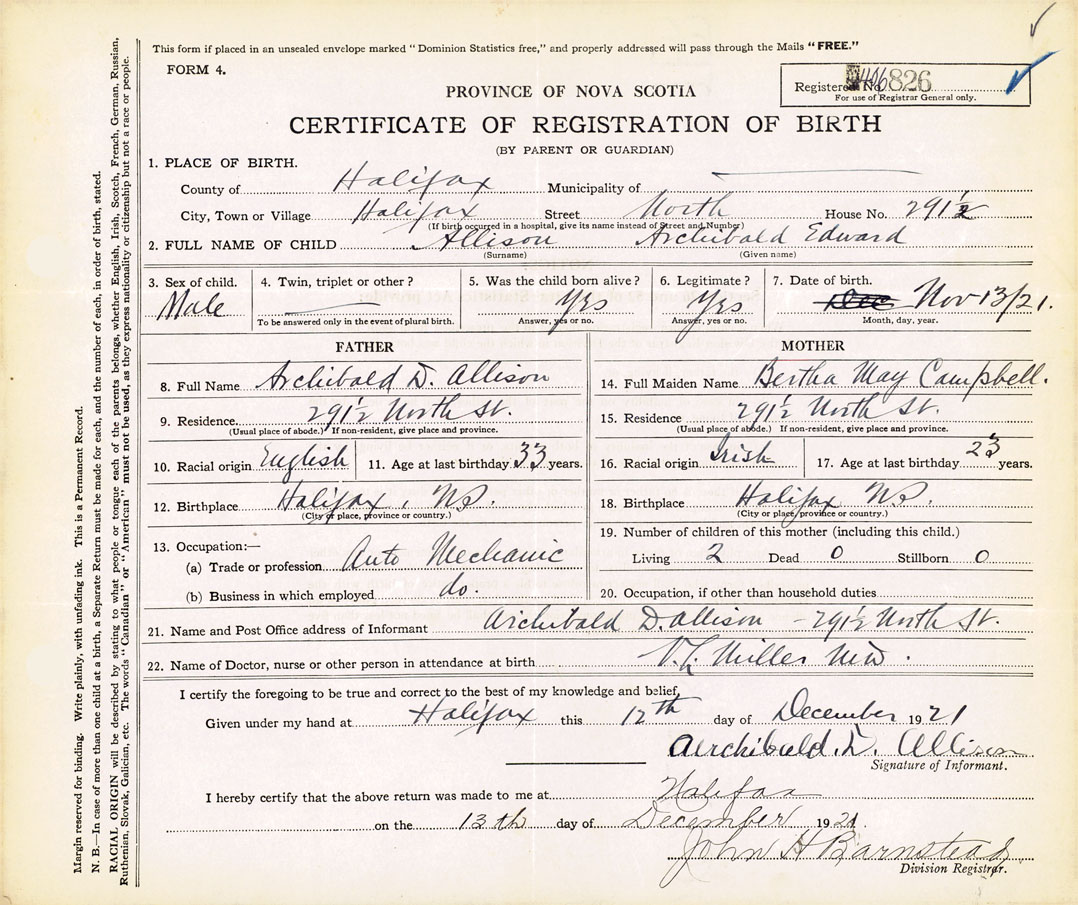 This form if placed in an unsealed envelope marked "Dominion Statistics free," and properly addressed will pass through the Mails "FREE."
FORM 4.
Registered No. 826
For use of Registrar General only.
PROVINCE OF NOVA SCOTIA
CERTIFICATE OF REGISTRATION OF BIRTH
(BY PARENT OR GUARDIAN)
1. PLACE OF BIRTH.
County of Halifax Municipality of
City, Town or Village Halifax Street North House No. 291½
(If birth occurred in a hospital, give its name instead of Street and Number)
2. FULL NAME OF CHILD Allison Archibald Edward
(Surname) (Given name)
3. Sex of child. 4. Twin, triplet or other? 5. Was the child born alive? 6. Legitimate? 7. Date of birth.
Male Yes Yes Dec Nov 13/21.
To be answered only in the event of plural birth. Answer, yes or no. Answer, yes or no. Month, day, year.
FATHER MOTHER
8. Full Name Archibald D. Allison 14. Full Maiden Name Bertha May Campbell.
9. Residence 291½ North St. 15. Residence 291½ North St.
(Usual place of abode.) If non-resident, give place and province. (Usual place of abode.) If non-resident, give place and province.
10. Racial origin English 11. Age at last birthday 33 years. 16. Racial origin Irish 17. Age at last birthday 23 years.
12. Birthplace Halifax, NS. 18. Birthplace Halifax NS.
(City or place, province or country.) (City or place, province or country.)
13. Occupation:— 19. Number of children of this mother (including this child.)
(a) Trade or profession Auto Mechanic Living 2 Dead 0 Stillborn 0
(b) Business in which employed do. 20. Occupation, if other than household duties
21. Name and Post Office address of Informant Archibald D. Allison - 291½ North St.
22. Name of Doctor, nurse or other person in attendance at birth V. L. Miller MD.
I certify the foregoing to be true and correct to the best of my knowledge and belief,
Given under my hand at Halifax this 12th day of December 1921
Archibald. D. Allison
Signature of Informant.
I hereby certify that the above return was made to me at Halifax
on the 13th day of December 1921.
John H Barnstead
Division Registrar.
Margin reserved for binding. Write plainly, with unfading ink. This is a Permanent Record.
N. B.—In case of more than one child at a birth, a Separate Return must be made for each, and the number of each, in order of birth, stated.
RACIAL ORIGIN will be described by stating to what people or tongue each of the parents belongs, whether English, Irish, Scotch, French, German, Russian,
Ruthenian, Slovak, Galician, etc. The words "Canadian" or "American" must not be used, as they express nationality or citizenship but not a race or people.